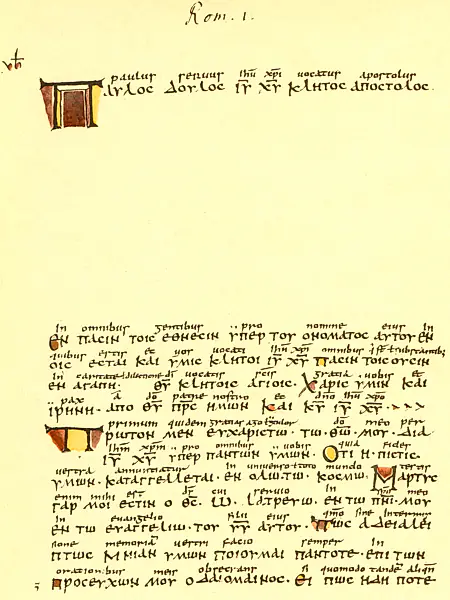 Rom. 1.
paulus seruus ihu xpi uocatus apostolus
ΠΑΥΛΟC ΔΟΥΛΟC ΙΥ ΧΥ ΚΛΗΤΟC ΑΠΟCΤΟΛΟC
In omnibus gentibus pro nomine eius In
ΕΝ ΠΑCΙΝ ΤΟΙC ΕΘΝΕCΙΝ ΥΠΕΡ ΤΟΥ ΟΝΟΜΑΤΟC ΑΥΤΟΥ ΕΝ
quibus estis et uos uocati ihu xpi omnibus
ΟΙC ΕCΤΑΙ ΚΑΙ ΥΜΙC ΚΛΗΤΟΙ ΙΥ ΧΥ ΠΑCΙΝ ΤΟΙC ΟΥCΙΝ
In caritate di uocatis scis gratia uobis et
ΕΝ ΑΓΑΠΗ· ΘΥ ΚΛΗΤΟΙC ΑΓΙΟΙC· ΧΑΡΙC ΥΜΙΝ ΚΑΙ
pax a do patre nostro et dno ihu xpo
ΙΡΗΝΗ· ΑΠΟ ΘΥ ΠΡC ΗΜΩΝ ΚΑΙ ΚΥ ΙΥ ΧΥ·
primum quidem gratias ago do meo per
ΠΡΩΤΟΝ ΜΕΝ ΕΥΧΑΡΙCΤΩ· ΤΩ· ΘΩ· ΜΟΥ· ΔΙΑ
ihm xpm pro omnibus uobis quia fides
ΙΥ ΧΥ ΥΠΕΡ ΠΑΝΤΩΝ ΥΜΩΝ· ΟΤΙ Η· ΠΙCΤΙC·
uestra annuntiatur In uniuerso mundo testis
ΥΜΩΝ· ΚΑΤΑΓΓΕΛΛΕΤΑΙ· ΕΝ ΟΛΩ ΤΩ· ΚΟCΜΩ· ΜΑΡΤΥC
enim mihi est di cui seruio In meo
ΓΑΡ ΜΟΙ ΕCΤΙΝ Ο ΘC· Ω· ΛΑΤΡΕΥΩ· ΕΝ ΤΩ ΠΝΙ· ΜΟΥ
In euangelio filii eius sine Intermis
ΕΝ ΤΩ ΕΥΑΓΓΕΛΙΩ· ΤΟΥ ΥΥ ΑΥΤΟΥ· ΠΩC ΑΔΕΙΑΛΕΙ
sione memoriam uestri facio semper In
ΠΤΩC ΜΝΙΑΝ ΥΜΩΝ ΠΟΙΟΥΜΑΙ ΠΑΝΤΟΤΕ· ΕΠΙ ΤΩΝ
orationibus meis obsecrans si quomodo
ΠΡΟCΕΥΧΩΝ ΜΟΥ Ο ΔΑΙΟΜΑΙΝΟC· ΕΙ ΠΩC ΗΔΗ ΠΟΤΕ